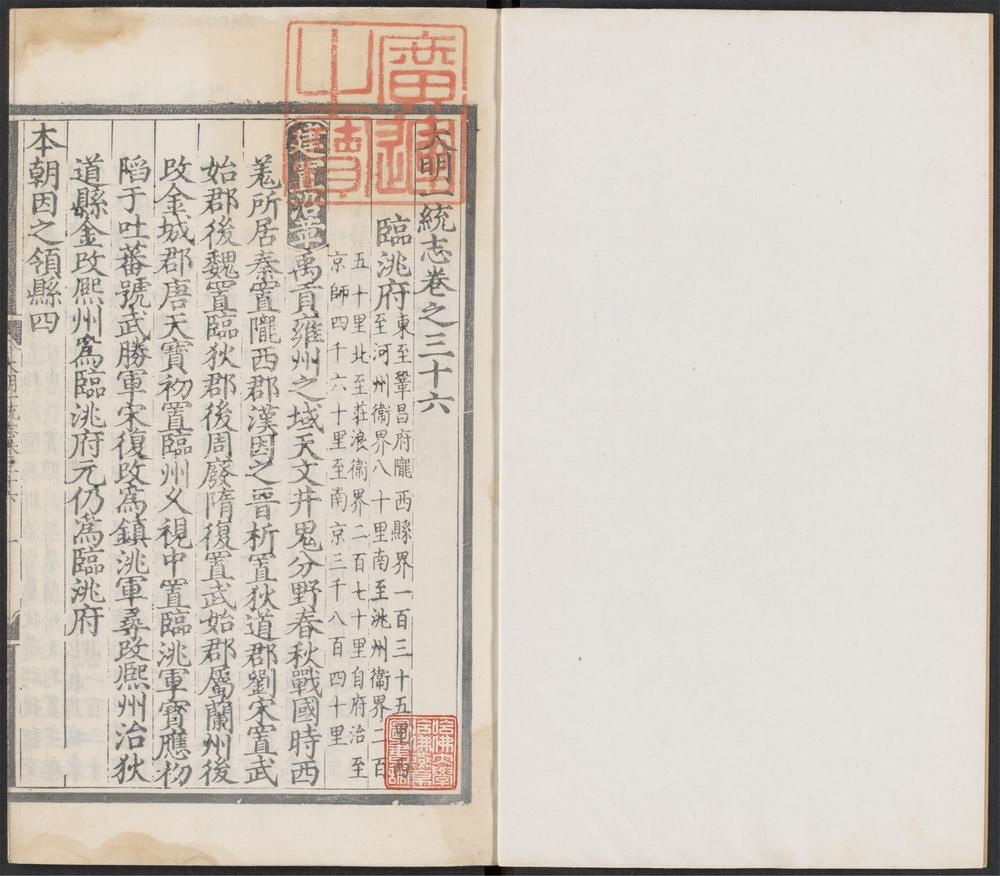 大明一統志卷之三十六
臨洮府
東至鞏昌府隴西縣界一百三十五里西
至河州衞界八十里南至洮州衞界二百
五十里北至莊浪衞界二百七十里自府治至
京師四千六十里至南京三千八百四十里
建置沿革禹貢雍州之域天文井鬼分野春秋戰國時西
羗所居秦置隴西郡漢因之晋析置狄道郡劉宋置武
始郡後魏置臨狄郡後周廢隋復置武始郡屬蘭州後
改金城郡唐天寶初置臨州乂視中置臨洮軍寶應初
陷于吐蕃號武勝軍宋復改爲鎮洮軍尋改熈州治狄
道縣金改熈州爲臨洮府元仍爲臨洮府
本朝因之領縣四
廣運之寶
哈佛大學哈佛燕京圖書館